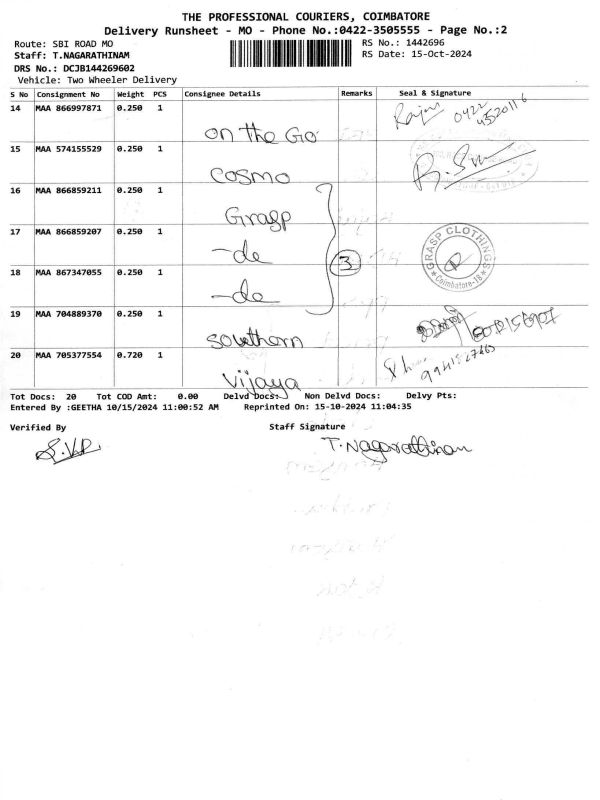 THE PROFESSIONAL COURIERS, COIMBATORE
Delivery Runsheet - MO - Phone No.:0422-3505555 - Page No.:2
Route: SBI ROAD MO
RS No.: 1442696
Staff: T.NAGARATHINAM
RS Date: 15-Oct-2024
DRS No.: DCJB144269602
Vehicle: Two Wheeler Delivery
S No Consignment No Weight PCS Consignee Details Remarks Seal & Signature
14 MAA 866997871 0.250 1
on the Go
15 MAA 574155529 0.250 1
COSMO
16 MAA 866859211 0.250 1
Grasp
17 MAA 866859207 0.250 1
-de
3
GRASP CLOTHINGS
Coimbatore-18
18 MAA 867347055 0.250 1
-de
19 MAA 704889370 0.250 1
southern
20 MAA 705377554 0.720 1
vijaya
Tot Docs: 20 Tot COD Amt: 0.00 Delvd Docs: Non Delvd Docs: Delvy Pts:
Entered By :GEETHA 10/15/2024 11:00:52 AM Reprinted On: 15-10-2024 11:04:35
Verified By Staff Signature
T. Nagarathinam